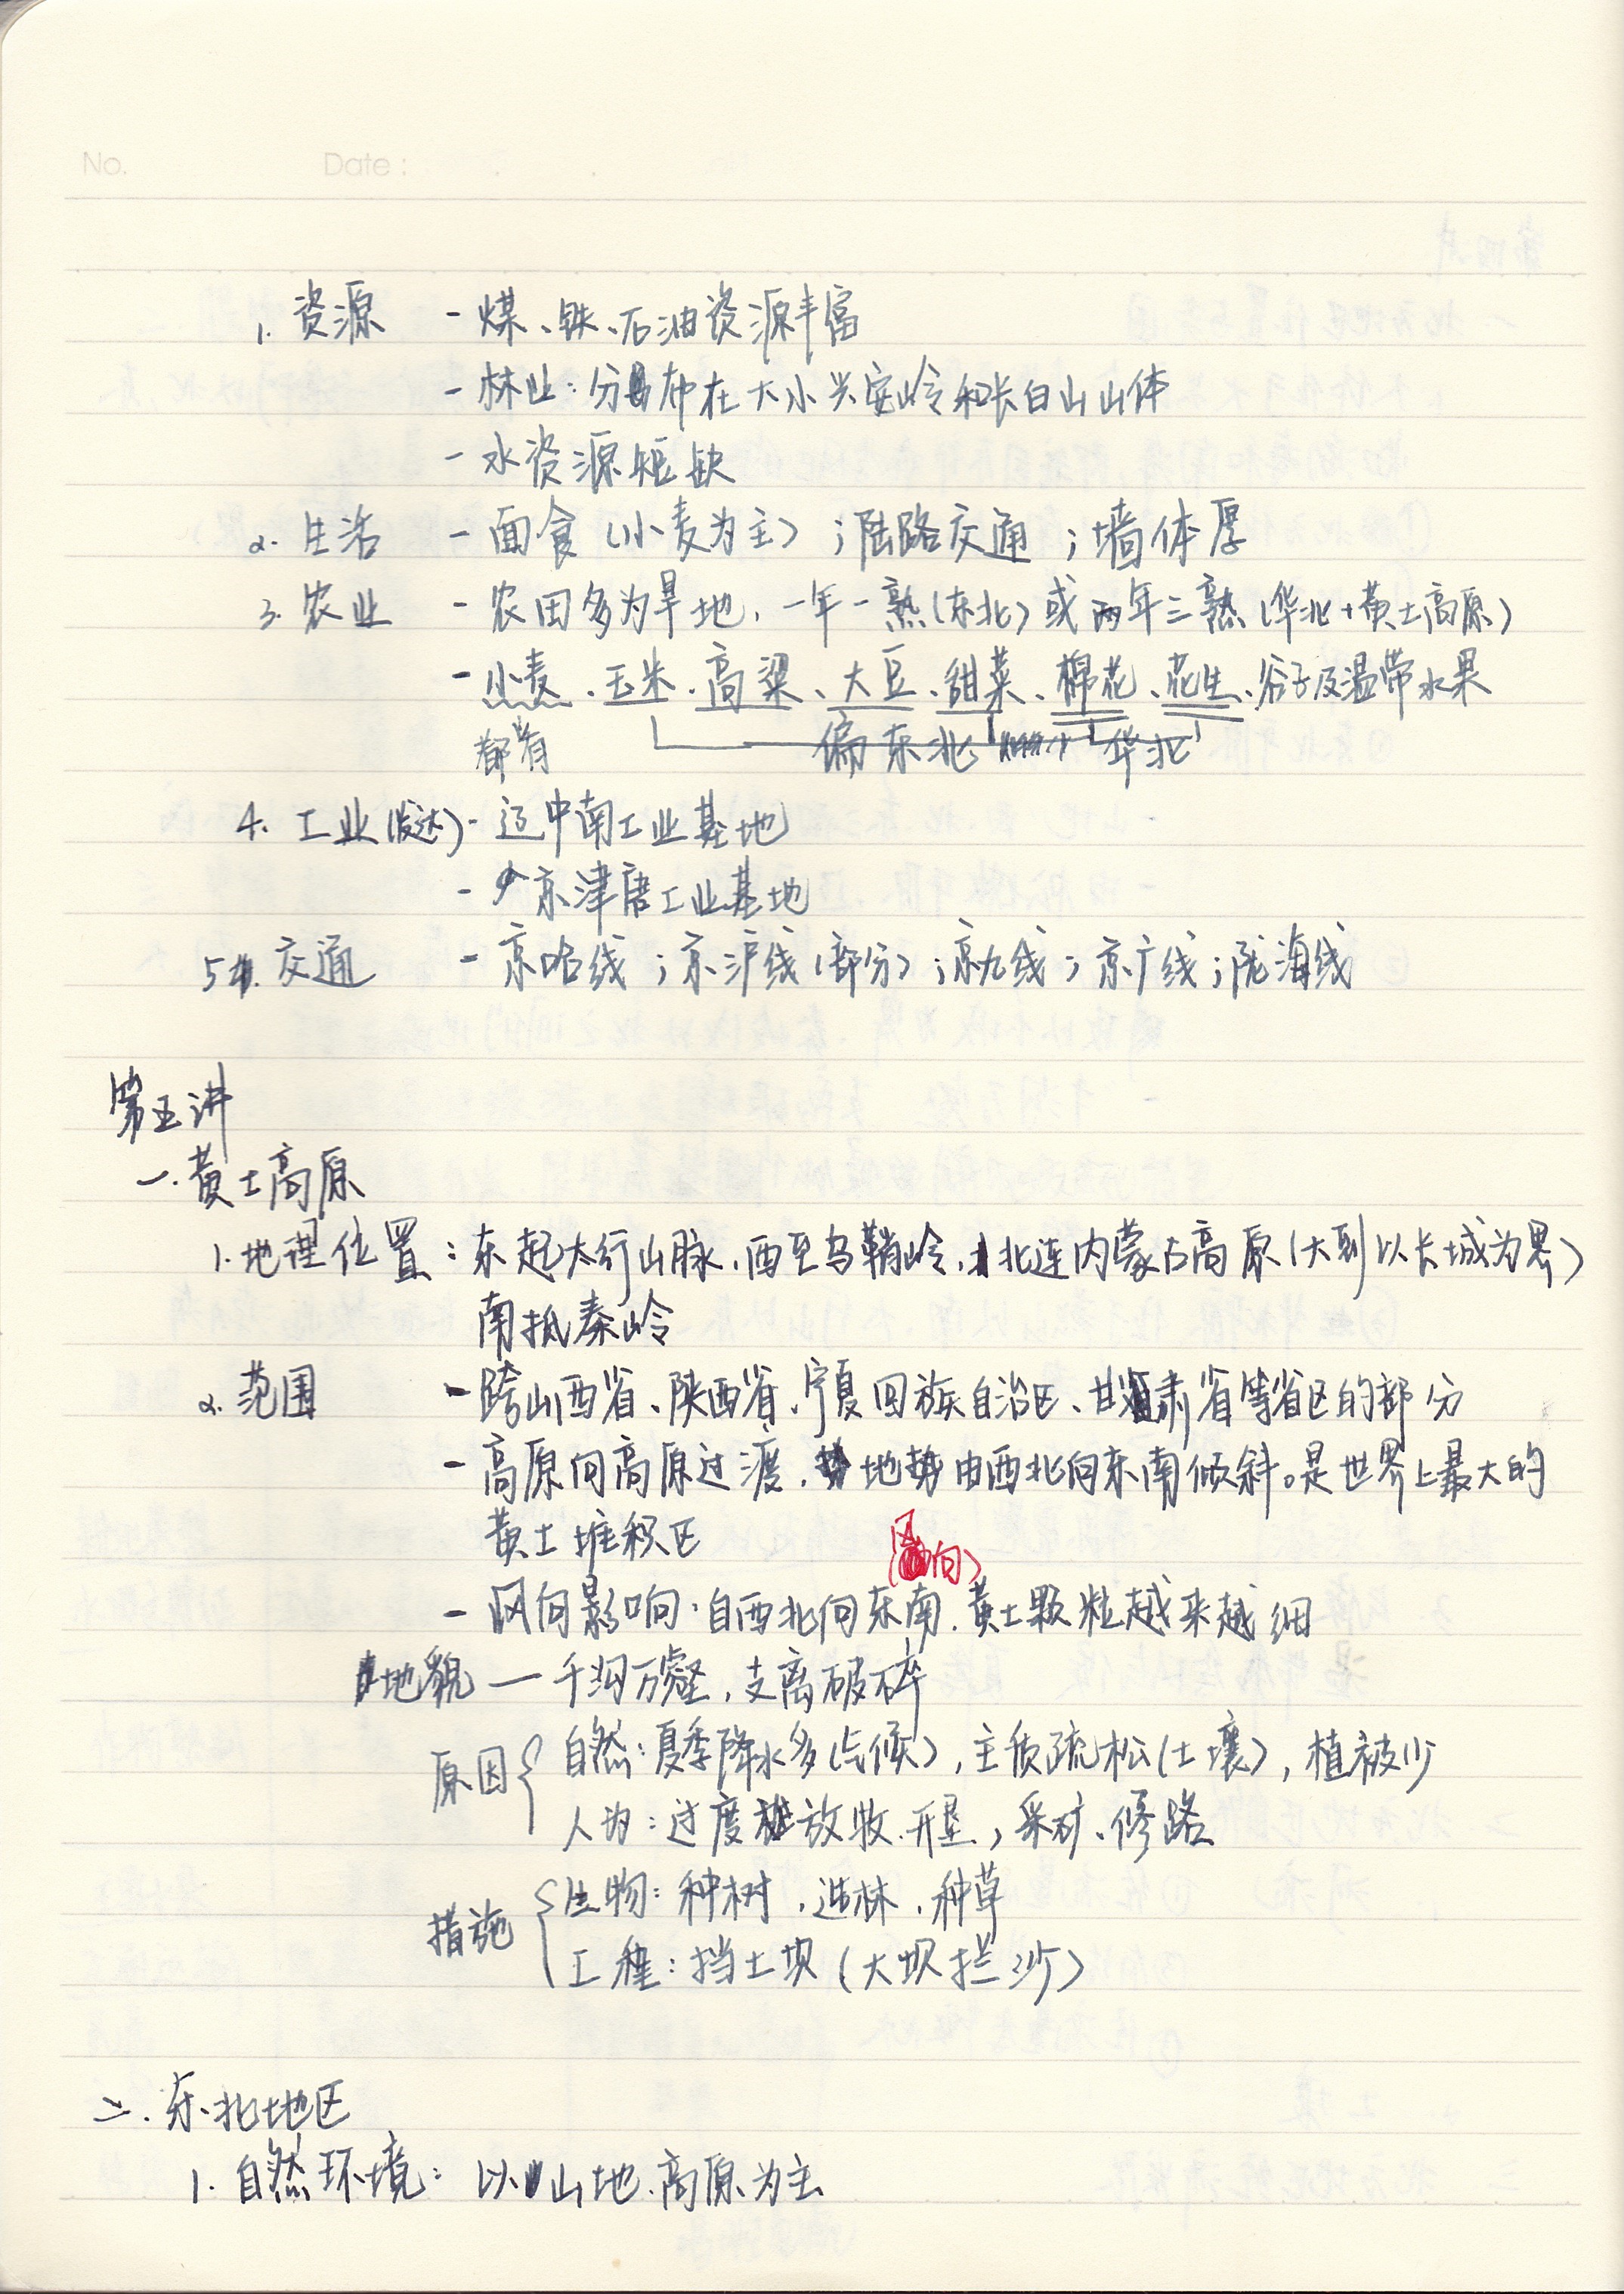 No. Date :
1. 资源 - 煤、铁、石油资源丰富
- 林业：分布在大小兴安岭和长白山山体
- 水资源短缺
2. 生活 - 面食（小麦为主）；陆路交通；墙体厚
3. 农业 - 农田多为旱地，一年一熟（东北）或两年三熟（华北+黄土高原）
- 小麦、玉米、高粱、大豆、甜菜、棉花、花生、谷子及温带水果
都有 偏东北 华北
4. 工业（发达）- 辽中南工业基地
- 京津唐工业基地
5. 交通 - 京哈线；京沪线（部分）；京九线；京广线；陇海线
第五讲
一. 黄土高原
1. 地理位置：东起太行山脉，西至乌鞘岭，北连内蒙古高原（大到以长城为界）
南抵秦岭
2. 范围 - 跨山西省、陕西省、宁夏回族自治区、甘肃省等省区的部分
- 高原向高原过渡，地势由西北向东南倾斜。是世界上最大的
黄土堆积区
（风向）
- 风向影响：自西北向东南，黄土颗粒越来越细
地貌 — 千沟万壑，支离破碎
原因 自然：夏季降水多（气候），土质疏松（土壤），植被少
人为：过度放牧、开垦，采矿、修路
措施 生物：种树，造林，种草
工程：挡土坝（大坝拦沙）
二. 东北地区
1. 自然环境：以山地、高原为主